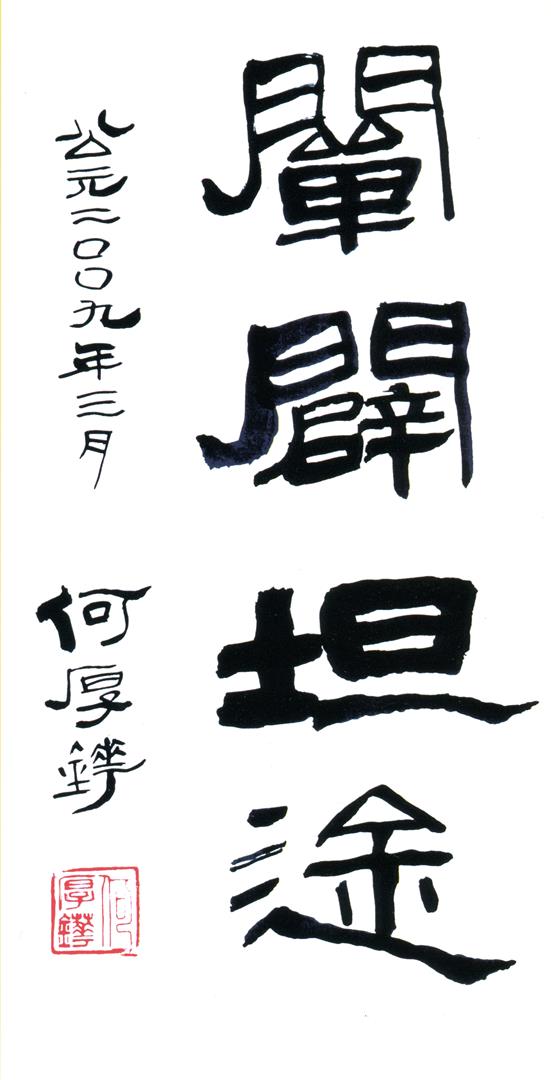 闡闢坦途
公元二〇〇九年三月 何厚鏵
何厚鏵